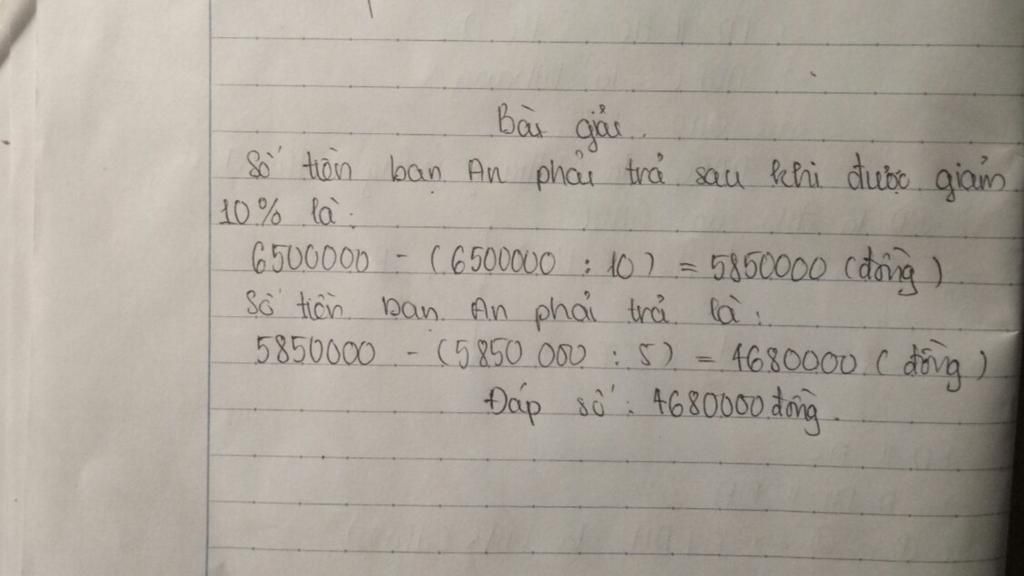 Bài giải.
Số tiền bạn An phải trả sau khi được giảm
10% là:
6500000 - (6500000 : 10) = 5850000 (đồng)
Số tiền bạn An phải trả là:
5850000 - (5850 000 : 5) = 4680000 (đồng)
Đáp số: 4680000 đồng.